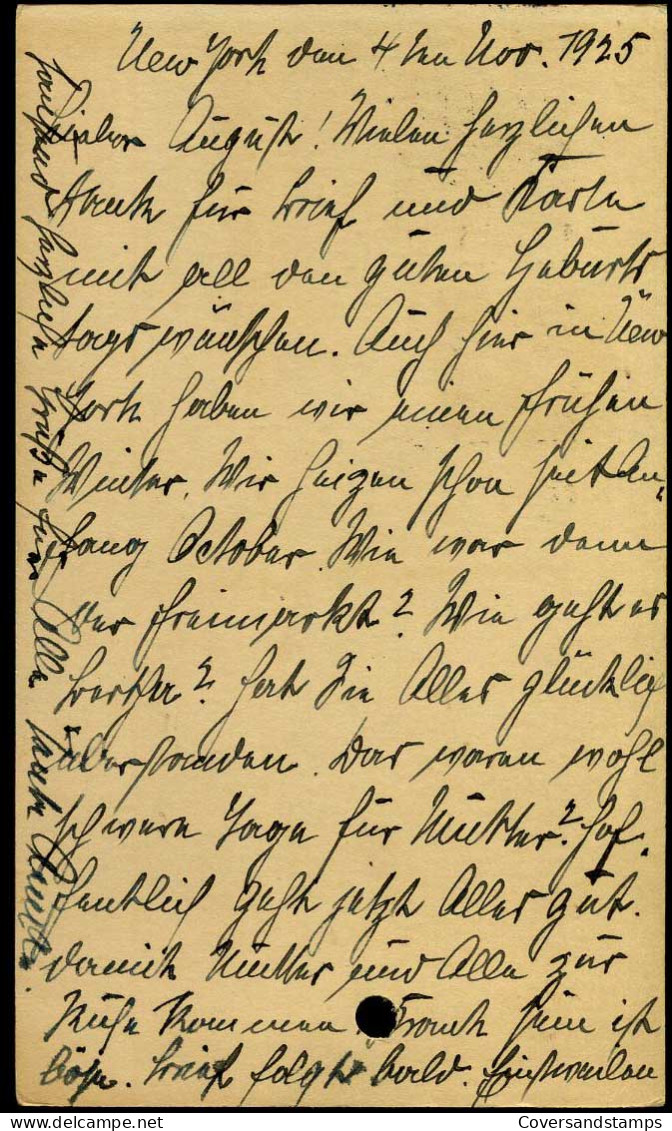 New York den 4ten Nov. 1925
Lieber August! Vielen herzlichen
Dank für Brief und Karte
mit all den guten Geburts
tags wünschen. Auch hier in New
York haben wir einen frühen
Winter. Wir heizen schon seit An„
fang October. Wie war denn
der Freimarkt? Wie geht es
Bertha? hat Sie Alles glücklich
überstanden. Das waren wohl
schwere Tage für Mutter? Hof„
fentlich geht jetzt Alles gut.
damit Mutter und Alle zur
Ruhe kommen. Frank sein ist
böse. Brief folgt bald. Einstweilen
tausend herzliche Grüße für Alle
CoversandStamps.com